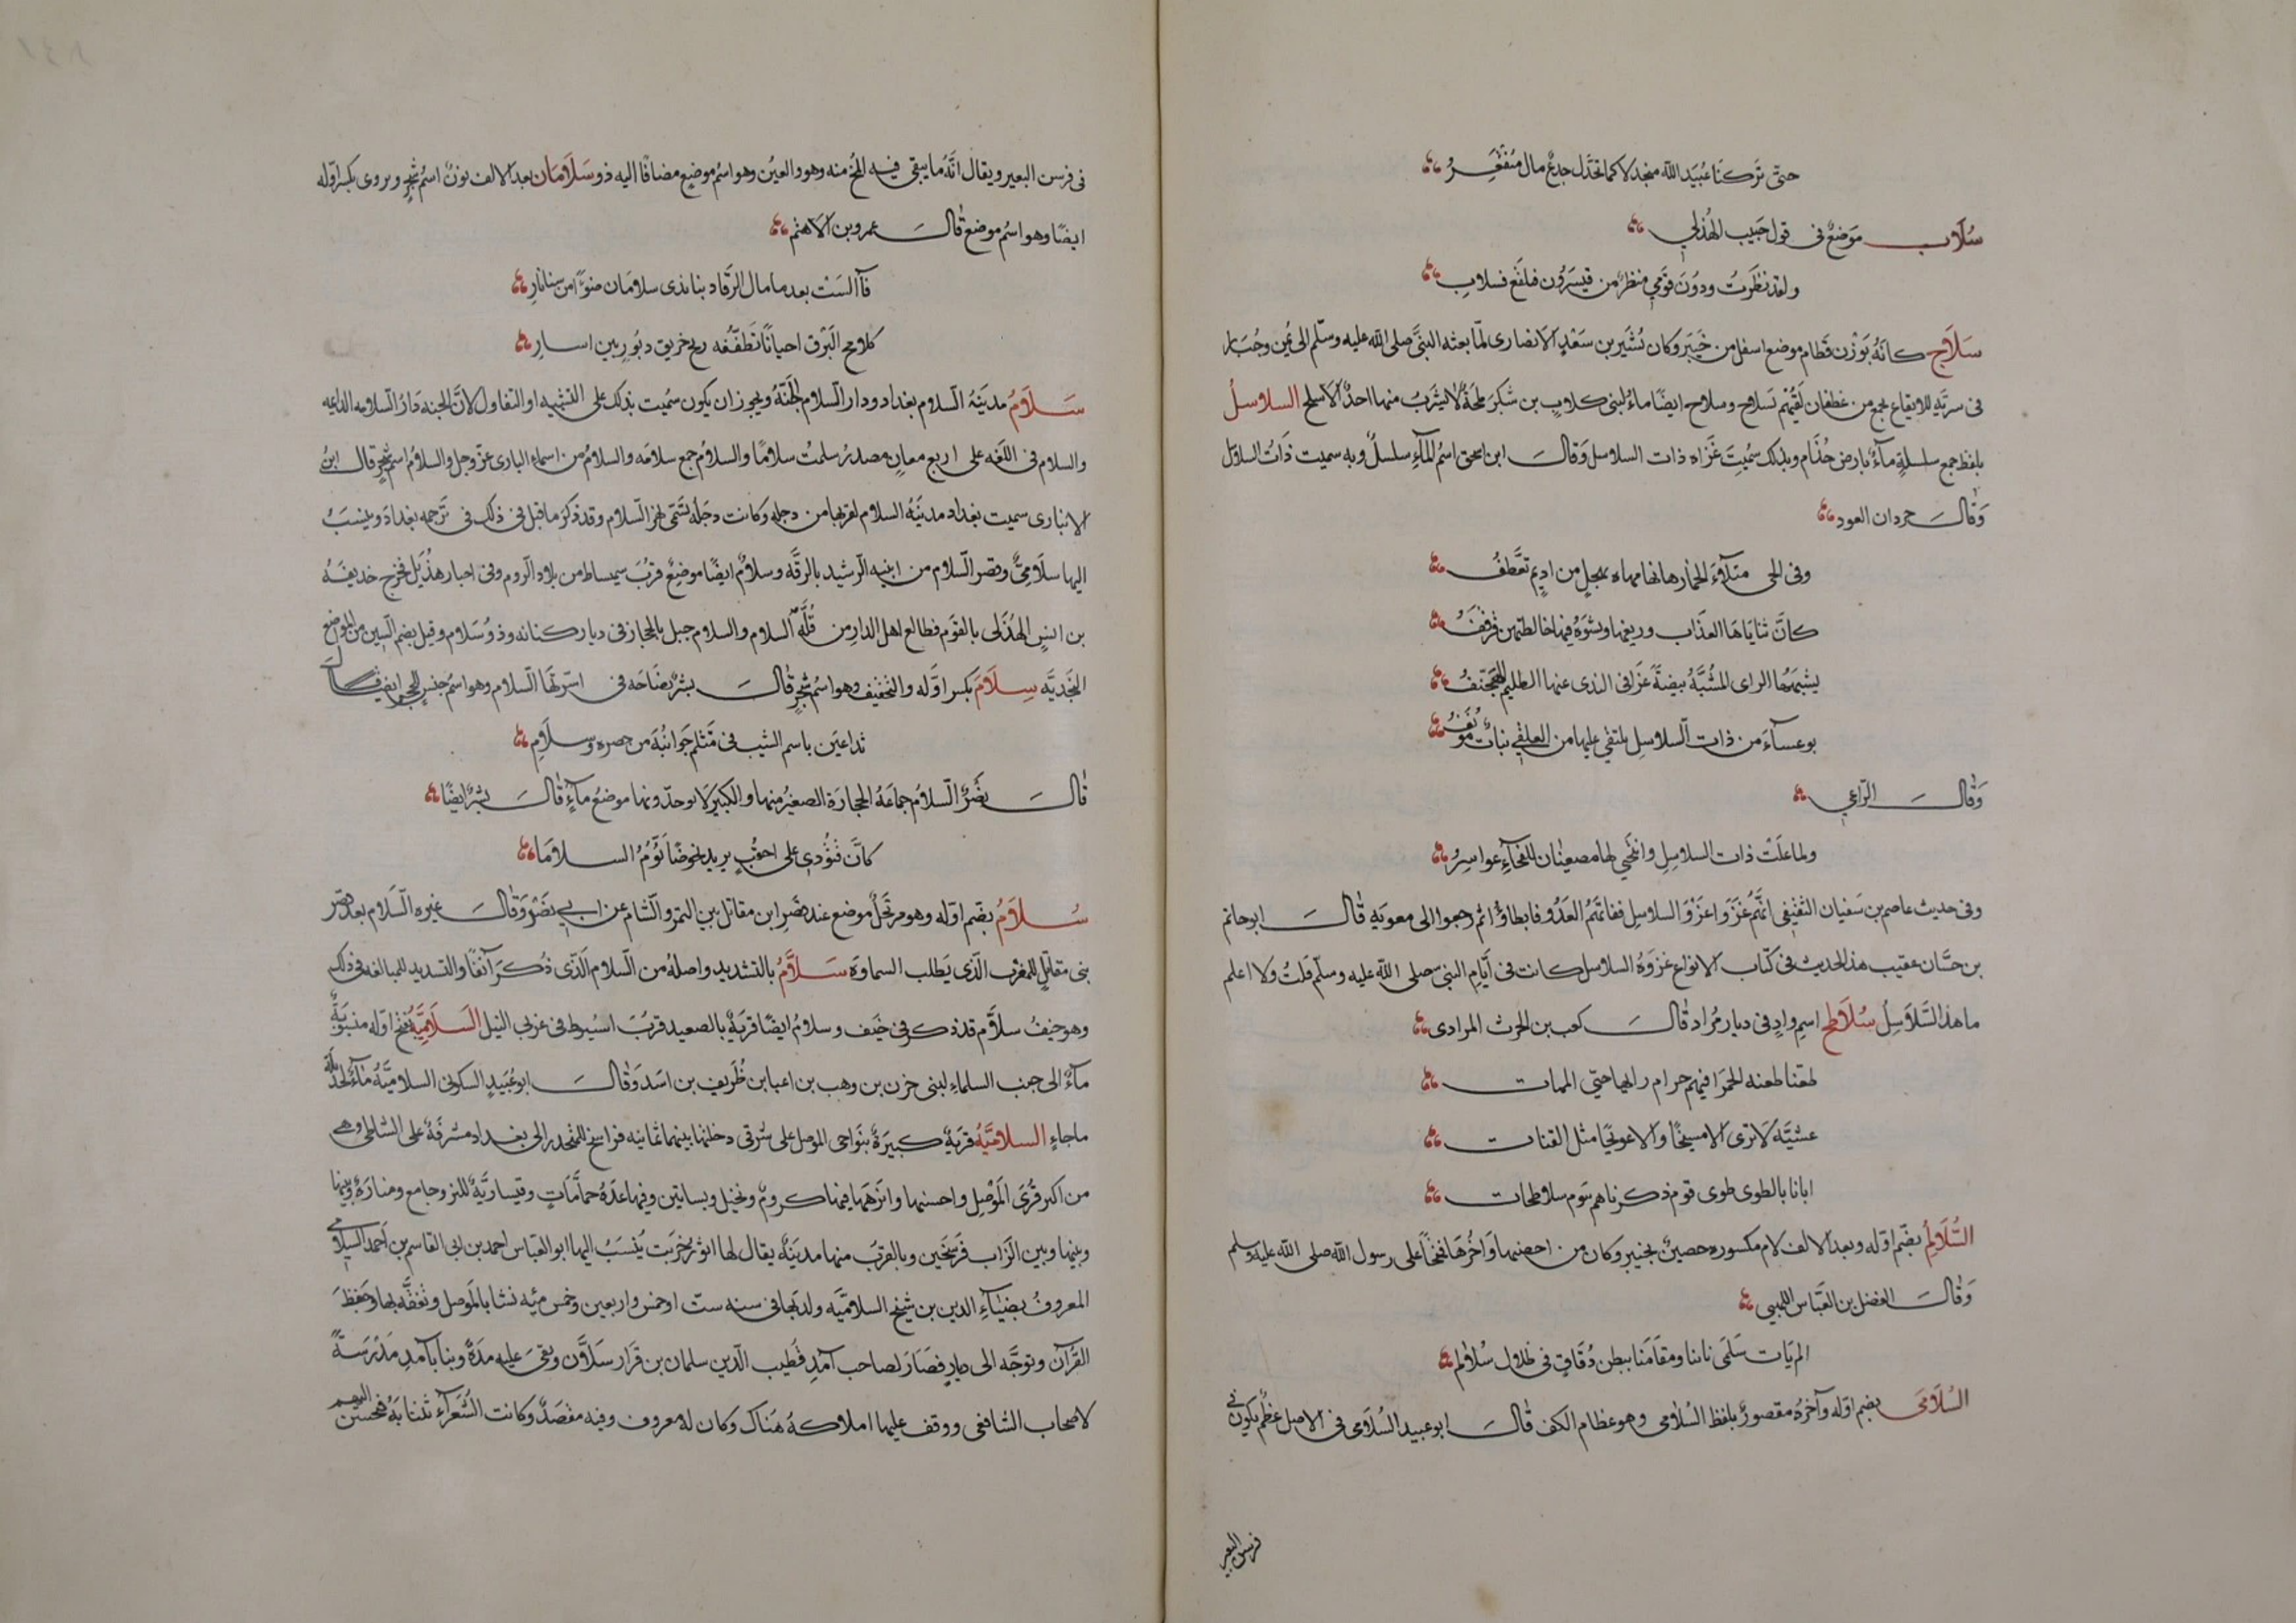 حتّى تركنا عُبَيد الله منجدلا كما تخذّل جذعٌ مال مُنقَعِرُ
سُلَاب مَوضعٌ فى قول حَبيب الهُذلي
ولقد نظَرتُ ودُونَ قَومي منظرٌ من قيسَرُون فبلقَع فسلابِ
سَلَاحِ كانَهُ بوَزن قَطام موضع اسفل من خَيبَر وكان بُشَير بن سَعْدٍ الانصارى لمّا بعثه النبىّ صلى الله عليه وسلّم الى يُمن وجُبَار
فى سريّةٍ للايقاع بجمع من غطفان لَقيُهم بَسلاح وسلاح ايضًا ماءٌ لبنى كلابٍ بن شَكرَ ملحَةٌ لا يشربُ منها احدٌ الا سلح السلاسلُ
بلفظ جمع سلسلةٍ مآءٌ بارض جُذَام وبذلك سُمِيَت غَزَاه ذات السلاسل وَقالَ ابن اسحق اسمُ المآءِ سلسلٌ وبه سميت ذَاتُ السلاسل
وَقالَ جردان العود
وفى الحى متلآءَ الخمار كانها مهاه بهجلٍ من اديمٍ تَعَطَّفُ
كانَّ ثنايَاهَا العذَاب وريقها ونشوَهُ فيها خالطتهن قرقفُ
يشبّهُهَا الراى المُشبَّهُ بيضةً غزا فى الندى عنها الظليم الهَجَنَّفُ
بوعسآءَ من ذات السلاسِلِ يلتقى عليها من العلقى نباتٌ مؤنفُ
وَقالَ الراعي
ولما عَلَتْ ذات السلاسِلِ وانتَحَي لها مصغيات للنجآءِ عواسِرُ
وفى حديث عاصم بن سفيان الثقفى انَّهُم غَزَوا غَزْوَ السلاسِلِ ففاتهُمُ العَدُو فابطاوا ثم رجعوا الى معويَه قالَ ابو حاتم
بن حبَّان عقيب هذا الحديث فى كتاب الانواع غزوَهُ السلاسل كانت فى أيّام النبى صلى الله عليه وسلّم قلتُ ولا اعلم
ما هذا السَّلَاسِلُ سُلَاطِح اسم وادٍ فى ديار مُراد قالَ كعب بن الحرث المرادى
طعنا طعنه الحمرَا فيهم حرام رايها حتى الممات
عشيَّه لا ترى الا مسيحًا والا عونجيًا مثل القنات
ابانا بالطوى طوى قوم ذكرناهم يَوم سلاطحات
السُّلَالِمُ بضّم اوّله وبعد الالف لام مكسوره حصينٌ بخيبر وكان من احصنها وَاخرُهَا فتحًا على رسول الله صلى الله عليه وسلم
وَقالَ الفضل بن العبّاس اللهبي
الم يَات سَلمَى نانا ومقَامَنا ببطن دُفَاقٍ فى ظلال سُلالم
السُلَامَى بضم اوّله وآخرُهُ مقصورٌ بلفظ السُلامى وهو عظام الكف قالَ ابو عبيد السُلَامى فى الاصل عظُم يكون فى
فرسن البعير
فى فرسن البعير ويقال انَّهُ ما يبقى فيه المُخ منه وهو والعين وهو اسمُ موضعٍ مضافًا اليه ذو سَلَامَان بعد الالف نونٌ اسمُ شجرٍ ويروى بكسر اوّله
ايضًا وهو اسمُ موضع قالَ عمرو بن الاهثم
فآالسَتْ بعد ما مال الرَّقاد بنا بذى سلامَان ضوًا من سنا نارِ
كلامح البَرْق احيانًا تَطفّفُه ريح خريق دبُورٍ بين اسارِ
سَلَامُ مدينَهُ السلام بغداد ودار السلام الجَنَّهُ ويجوز ان يكون سُميت بذلك على التشبيه او التفاول لانَّ الجنه دَارُ السلامه الدايمه
والسلام فى اللغه على اربع معانٍ مصدرُ سلمتُ سلامًا والسلامُ جمع سلامَه والسلامُ من اسماءِ البارى عزّ وجل والسلامُ اسمُ شجرٍ قال ابنُ
الانبارى سميت بغداد مدينَهُ السلام لقربها من دجله وكانت دجلَهُ تسَمّى نهر السلام وقد ذكرَ ما قيل فى ذلك فى ترجمه بغدادَ ويُنسَبُ
اليها سلَامِىٌّ وقصر السلام من ابنيه الرشيد بالرقَّه وسلامٌ ايضًا موضعٌ قربُ سميساط من بلاد الروم وفى اخبار هذَيل فخرج خذيفهُ
بن انسٍ الهُذَلى بالقوم فطالع اهل الدار من قُلَّه السلام والسلام جبل بالحجاز فى ديار كنانه وذو سَلَام وقيل بضم السين من المواضع
النجديَّه سِلَامَ بكسر اوَّله والتخفيف وهو اسمُ شجرٍ قالَ بشر نضَاحَه فى اسرتها السلام وهو اسمُ جنسٍ للحجر ايضا قال
تداعَين باسم الشيب فى مَتثلّمٍ جَوانبُه من بصره وسلَامِ
قالَ نصْرُ السلامُ جماعَهُ الحجارَة الصغيرُ منها والكبيرَلا يوحدّونها موضعُ مآءٍ قالَ بشرٌ ايضًا
كانَّ قُتُودِى على احقَبٍ يريد نحوصًا تَؤُمُّ السلامَا
سُلَامُ بضّم اوّله وهو مرتَجَلٌ موضع عند قصرِ ابن مقاتل بين التمر والشام عن ابي نَصْرٍ وَقالَ غيره السّلَام بعد قصَرِ
بنى مقاتلٍ للمغْرب الّذى يَطلب السماوَة سَلَّامُ بالتشديد واصلهُ من السلام الَّذى ذُكرَ آنفًا والتسديد للمبالغه فى ذلك
وهو خيفُ سلَّام قد ذكر فى خَيَف وسلامُ ايضًا قريَةٌ بالصعيد قربَ اسيُوط فى غربى النيل السَلَاميَّهُ بفتح اوله منسوبَةٌ
مآءٌ الى جنب السلماءِ لبنى حزن بن وهب بن اعيا بن طُرَيف بن اسَد وَقالَ ابو عُبَيد السكونى السلاميَّهُ مآءٌ لجديلَه
ماجاءِ السلاميَّهُ قريَةٌ كبيرَةٌ بنَواحى الموصل على شرقى دجلتها بينهما ثمانيه فراسخ للمنحدر الى بغداد مشرفَةٌ على الشاطى وهى
من اكبر قُرَى المَوصِل واحسنها وانزَهها فيها كرومٌ ونخيل وبساتين وفيها عدَهُ حماَّمَاتٍ وقيساريَّةٌ للبَز وجامع ومنارَةٌ وبينها
وبينها وبين الزَاب فَرسَخَين وبالقربَ منها مدينَةٌ يقال لها اثور خَرَبَت يُنسَبُ اليها ابو العبَاس احمد بن ابى القاسم بن أحمد السلامى
المعروفُ بضيآءِ الدين بن شيخ السلاميَّه ولد بَها فى سنه ستّ او خمس واربعين وخمس مئه نشا بالمَوصل وتفَقَّه بها وحَفظَ
القُرآن وتوجَّه الى ديارٍ فصَارَ لصاحب آمَدِ قُطِيب الدّين سلمان بن قرَار سَلَّان وبقىَ عليه مدَةً وبنا بآمدِ مَدْرَسةً
لاصحاب الشافعى ووقف عليها املاكهُ هنَاك وكان لهُ معروف وفيه مقصَدٌ وكانت الشُعَرآءُ تنتا بَهُ فيحسن اليهم